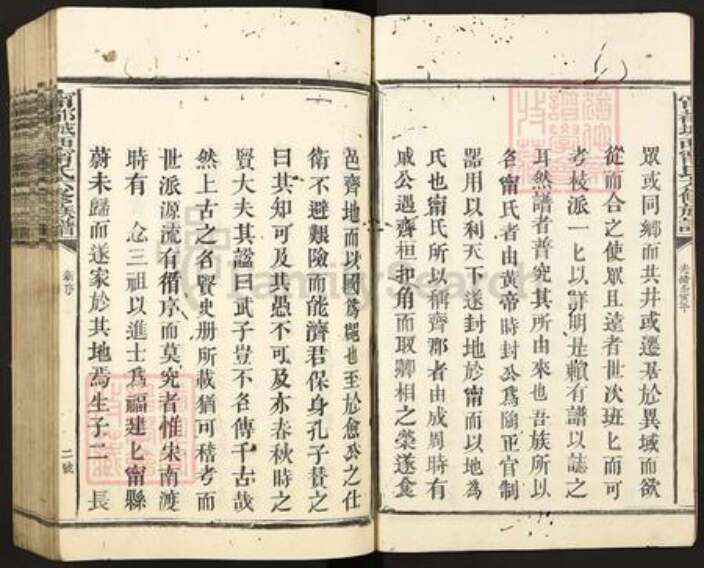 眾或同鄉而共井或遷居於異域而欲
從而合之使眾且遠者世次班匕而可
考枝派一匕以詳明是賴有譜以誌之
耳然譜者普究其所由來也吾族所以
名甯氏者由黃帝時封公為陶正官制
器用以利天下遂封地於甯而以地為
氏也甯氏所以稱齊郡者由成周時有
戚公遇齊桓扣角而取卿相之榮遂食
邑齊地而以國為郡也至於愈公之仕
衛不避艱險而能濟君保身孔子賛之
曰其知可及其愚不可及亦春秋時之
賢大夫其謚曰武子豈不名傳千古哉
然上古之名賢史册所載猶可稽考而
世派源流有循序而莫究者惟宋南渡
時有 念三祖以進士為福建匕甯縣
蔚未歸而遂家於其地焉生子二 長
新序
二號
FamilySearch